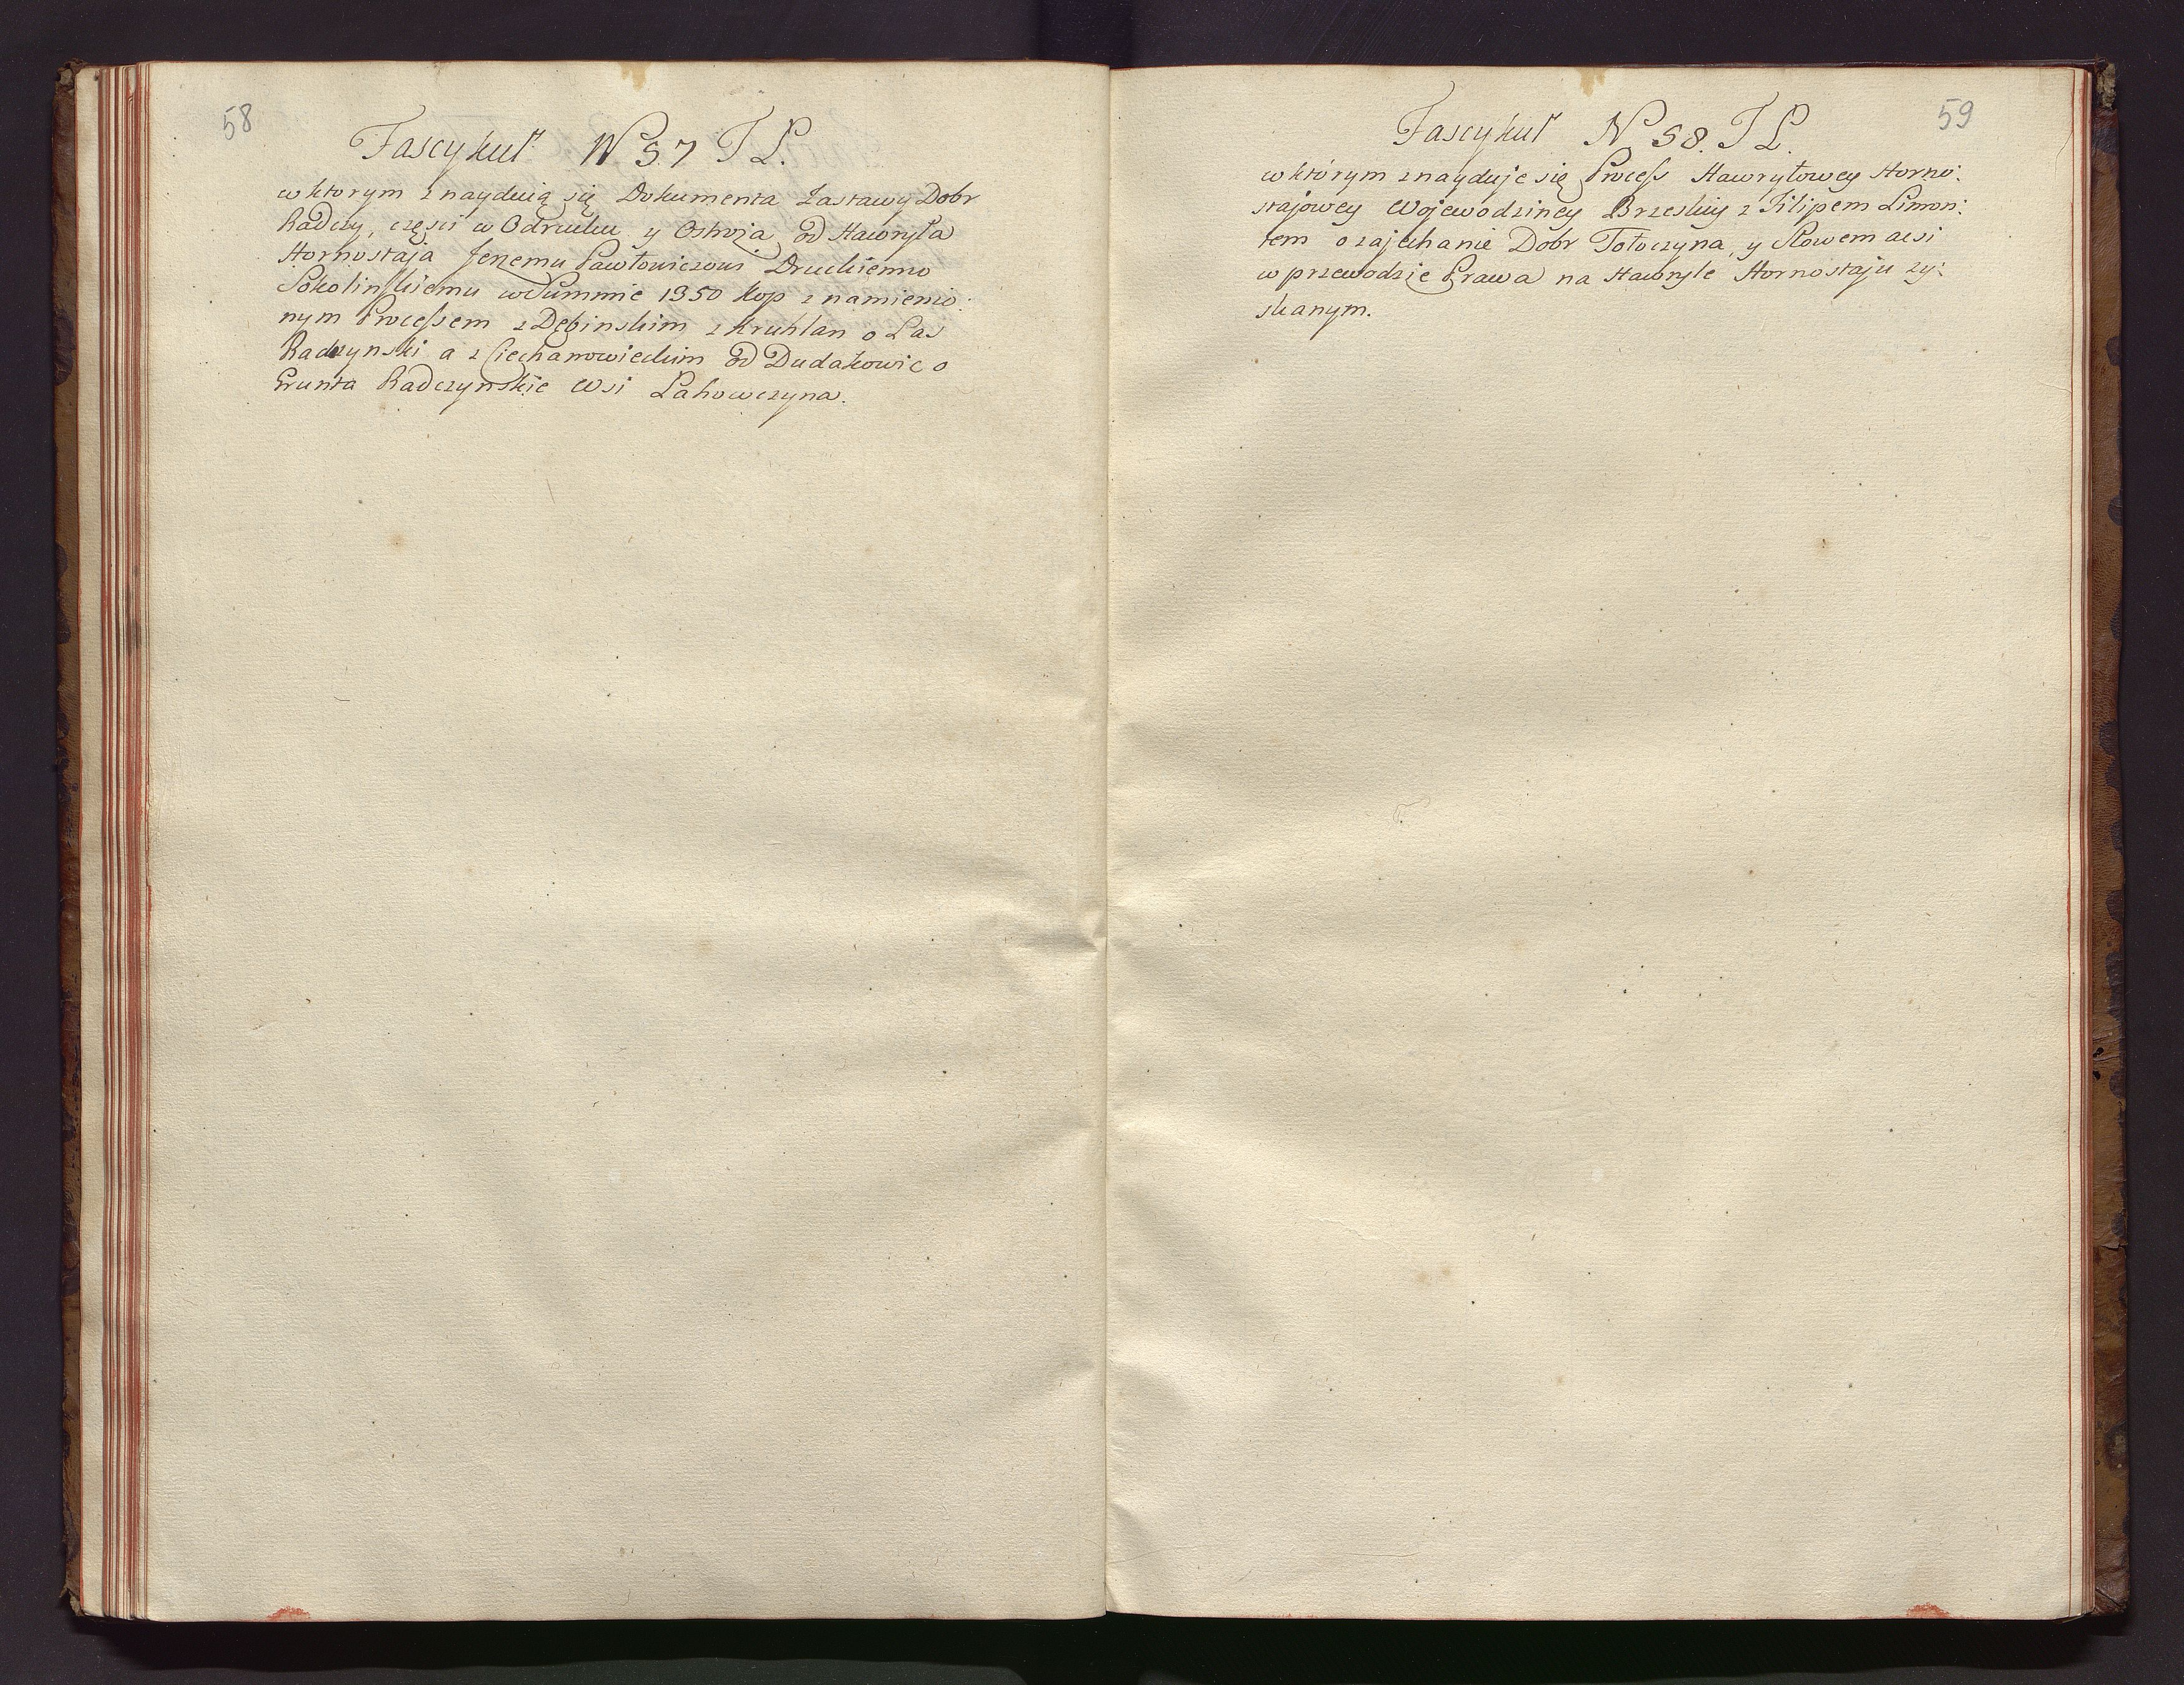 58
Fascykuł N 57 T L.
w ktorym znayduią się Dokumenta Zastawy Dobr
Radczy, części w Odrucku y Ostroża od Hawryła
Hornostaja Jerzemu Pawłowiczowi Druckiemu
Sokolinskiemu w Summie 1350 kop z namienio:
nym Processem z Dębinskim z Kruhlan o Las
Radczynski a z Ciechanowieckim od Dudakowic o
Grunta Radczynskie Wsi Lahowczyna.
59
Fascykuł N 58. T L.
w którym znayduje się Process Hawryłowey Horno:
stajowey Wojewodziney Brzeskiy z Filipem Limon:
tem o zajechanie Dobr Tołoczyna, y Słowem aesi
w przewodzie Prawa na Hawryle Hornostaju zy:
skanym.